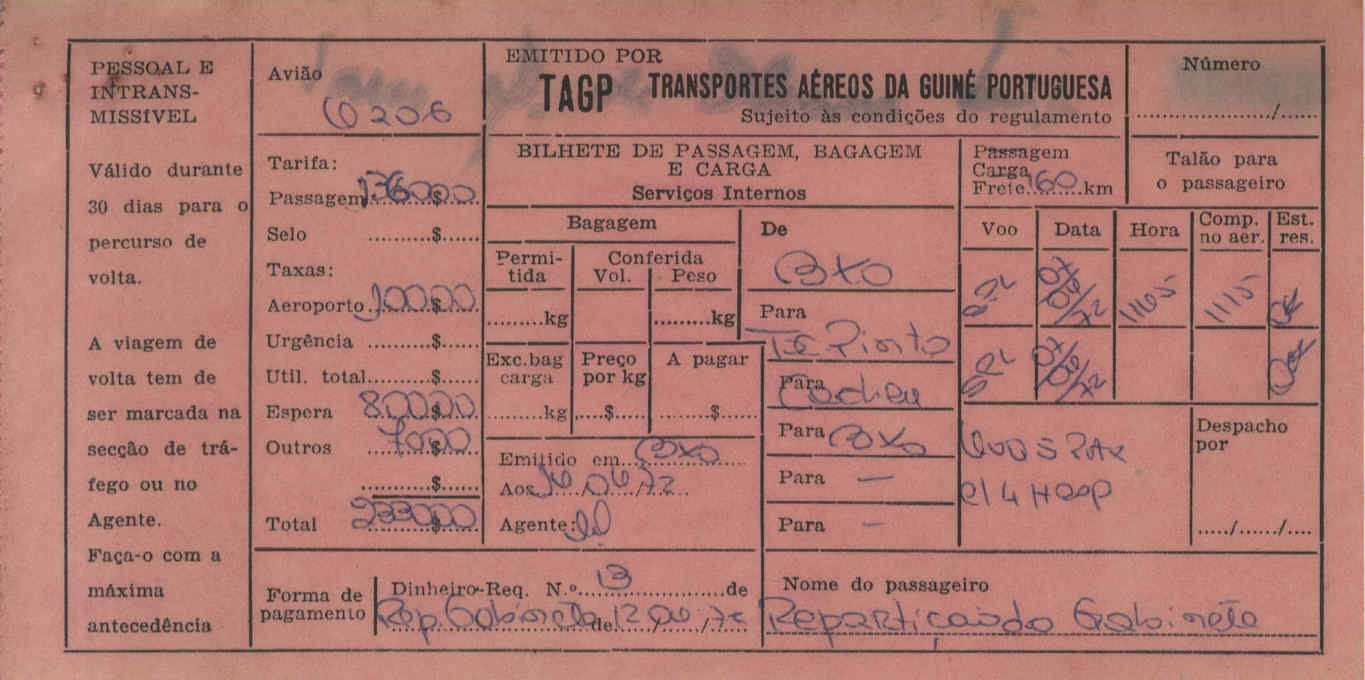 PESSOAL E
INTRANS-
MISSÍVEL
Válido durante
30 dias para o
percurso de
volta.
A viagem de
volta tem de
ser marcada na
secção de trá-
fego ou no
Agente.
Faça-o com a
máxima
antecedência
Avião
C206
Tarifa:
Passagem 1760$00
Selo ..........$......
Taxas:
Aeroporto 100$00
Urgência ..........$......
Util. total..........$......
Espera 800$00
Outros 70$00
..........$......
Total 2330$00
EMITIDO POR
TAGP TRANSPORTES AÉREOS DA GUINÉ PORTUGUESA
Sujeito às condições do regulamento
Número
....................../......
BILHETE DE PASSAGEM, BAGAGEM
E CARGA
Serviços Internos
Passagem
Carga
Frete 160 km
Talão para
o passageiro
Bagagem
Permi-
tida
Conferida
Vol. Peso
.........kg .........kg
Exc.bag
carga
Preço
por kg
A pagar
......kg ....$...... .......$......
Emitido em BXO
Aos 16/06/72
Agente:
De
BXO
Para
T. Pinto
Para
Cacheu
Para BXO
Para —
Para —
Voo Data Hora Comp.
no aer. Est.
res.
07/06/72 1145 1115 OK
07/06/72 OK
5 PAX
c/ 4 Hosp
Despacho
por
...../....../....
Forma de
pagamento
Dinheiro-Req. N.º 13 de
Rep. Gabinete de 12/06/72
Nome do passageiro
Repartição do Gabinete